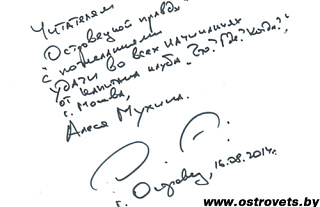 Читателям
Островецкой правды
с пожеланиями
удачи во всех начинаниях
от капитана клуба "Что? Где? Когда?",
г. Москва,
Алеся Мухина.
г. Островец, 16.08.2014г.
www.ostrovets.by